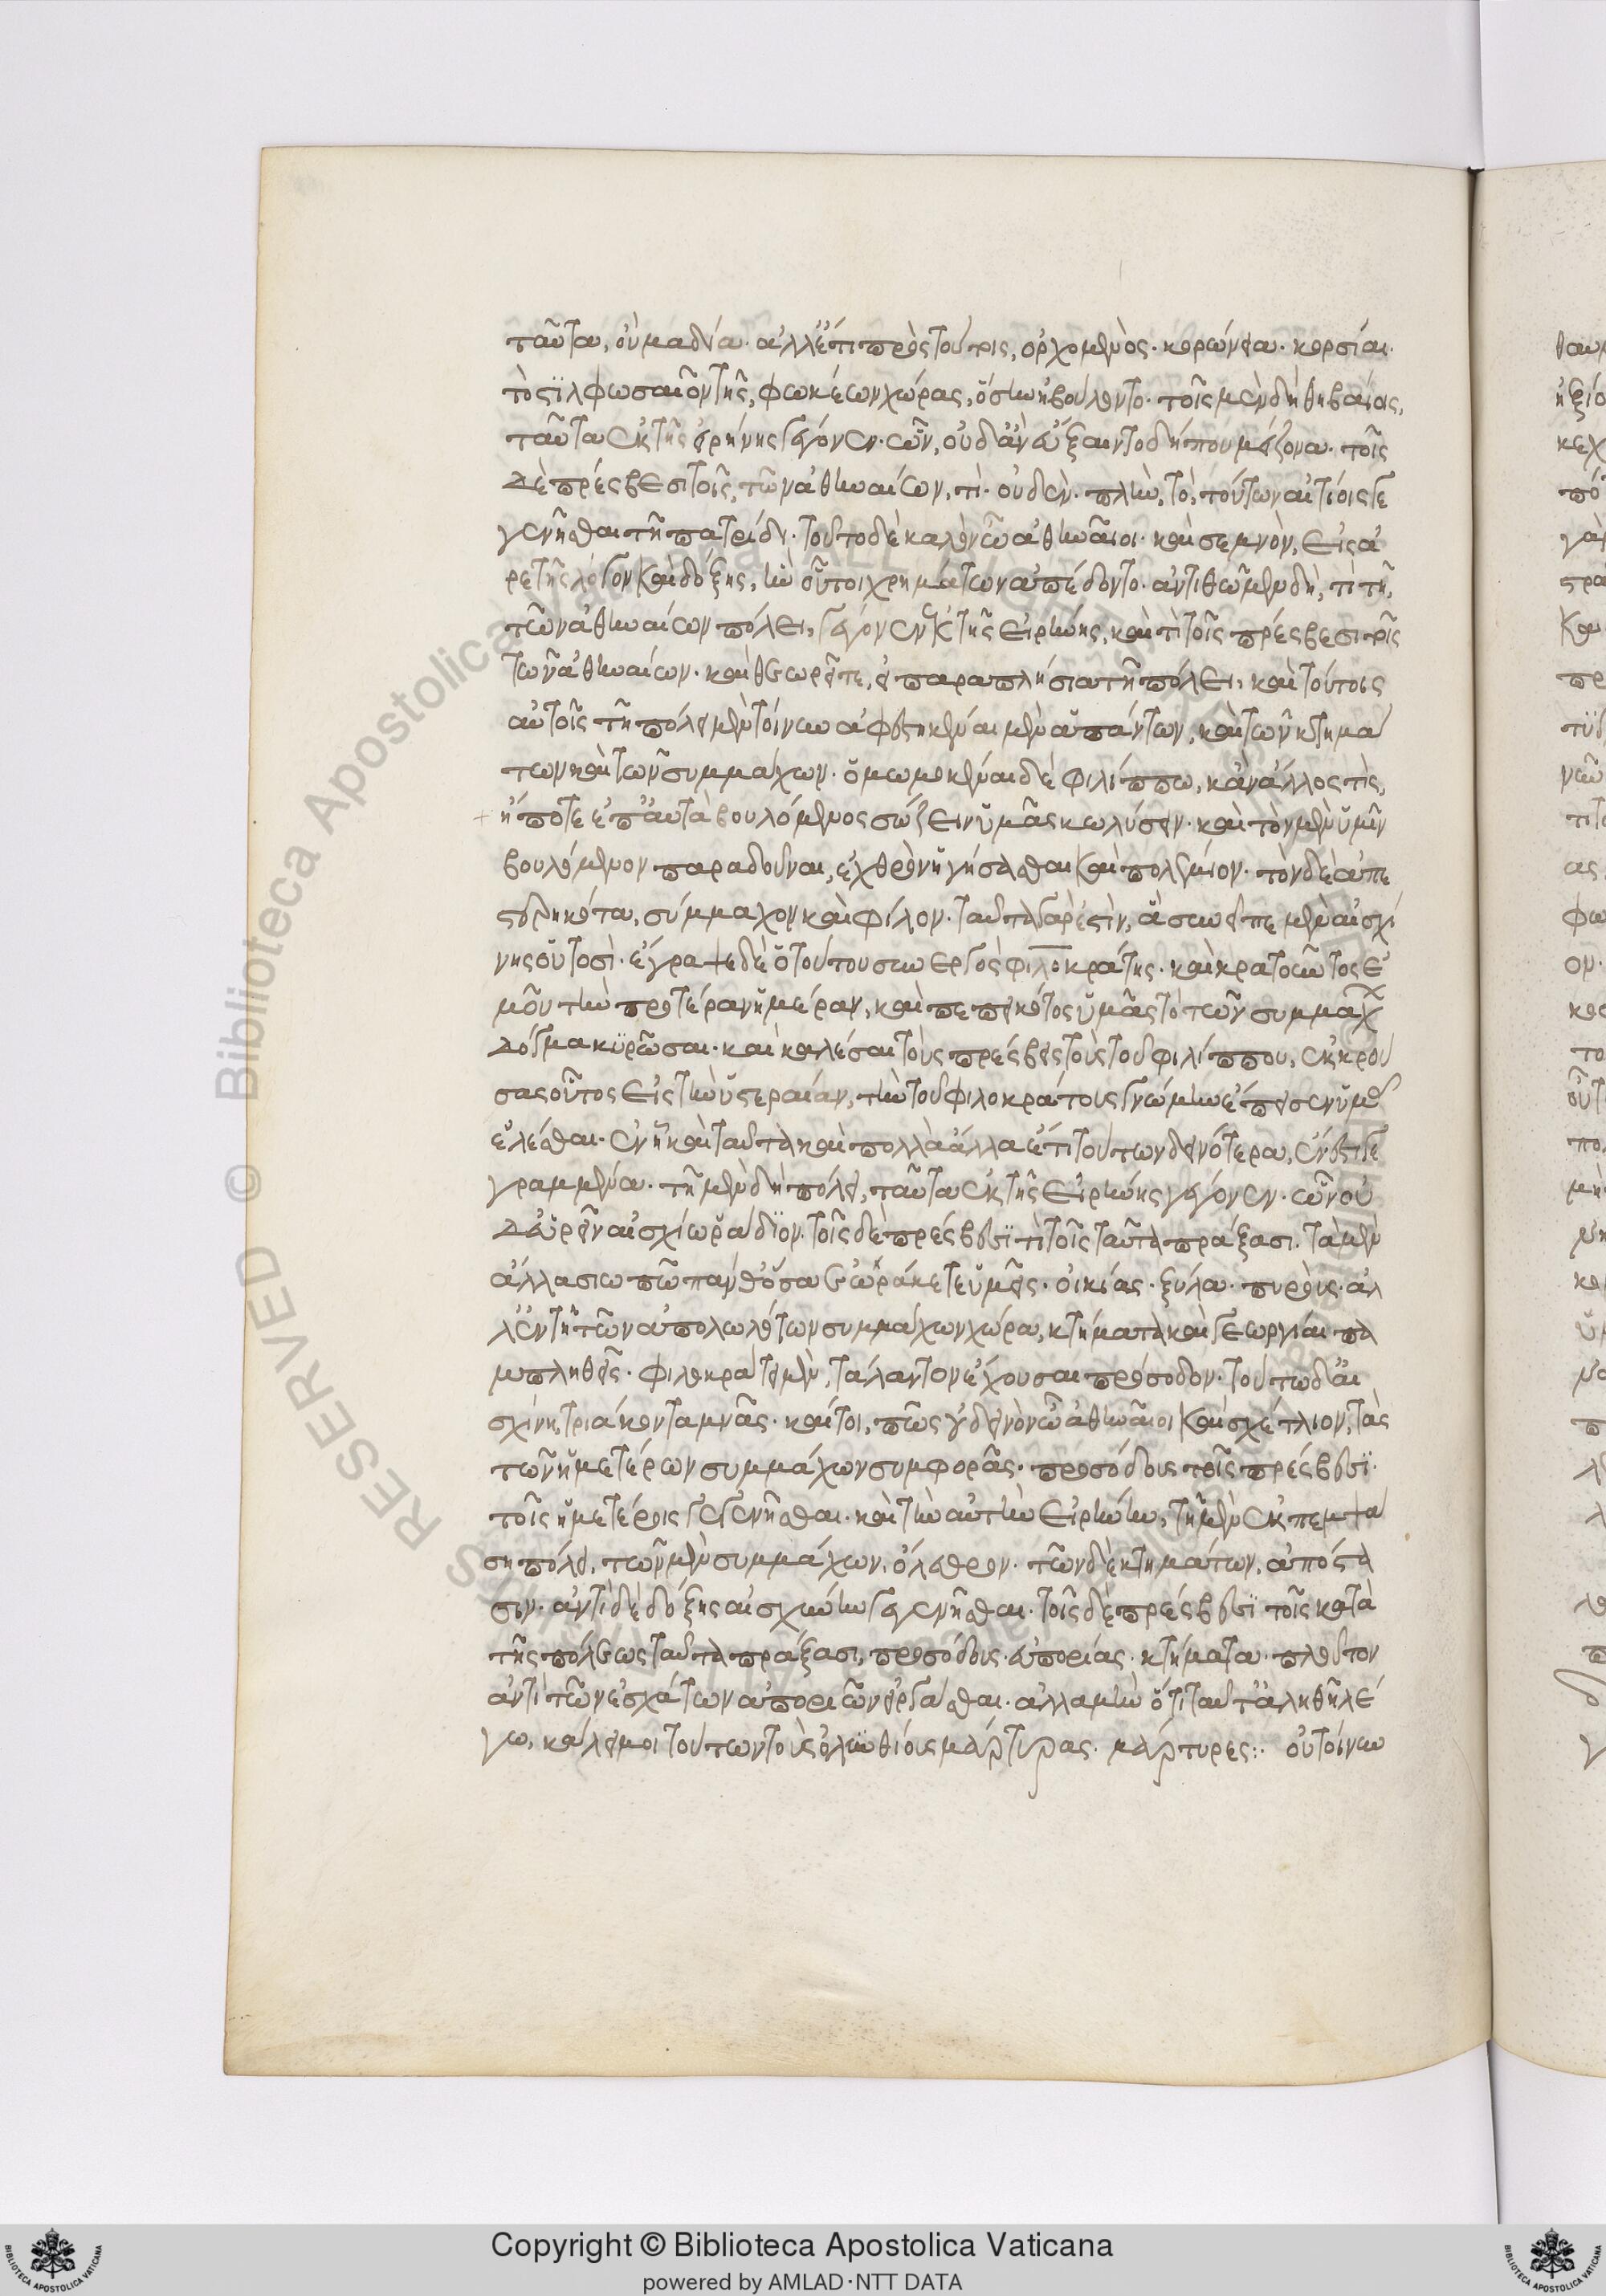 ταῦτα, οὐ μὰ δία· ἀλλ' ἔτι πρὸς τούτοις, ὀρχομενὸς· κορώνεια· κορσίαι·
τὸ τιλφωσαῖον τῆς φωκέων χώρας, ὅσην ἠβούλοντο· τοῖς μὲν δὴ θηβαίοις,
ταῦτα ἐκ τῆς εἰρήνης γέγονεν· ὧν, οὐδ' ἂν εὔξαιντο δήπου μείζονα· τοῖς
δὲ πρέσβεσι τοῖς τῶν ἀθηναίων, τί· οὐδὲν· πλὴν, τὸ, τούτων αἰτίοις γε
γενῆσθαι τῇ πατρίδι· τοῦτο δὲ καλὸν ὦ ἀθηναῖοι· καὶ σεμνὸν, εἴς ἀ
ρετῆς λόγον καὶ δόξης, ἣν οὗτοι χρημάτων ἀπέδοντο· ἀντιθῶμεν δὴ, τί τῇ
τῶν ἀθηναίων πόλει, γέγονεν ἐκ τῆς εἰρήνης, καὶ τί τοῖς πρέσβεσι τοῖς
τῶν ἀθηναίων· καὶ θεωρεῖτε, εἰ παραπλήσια τῇ πόλει, καὶ τούτοις
αὐτοῖς τῇ πόλει μὲν τοίνυν ἀφεστηκέναι μὲν ἁπάντων, καὶ τῶν κτημά
των καὶ τῶν συμμάχων· ὀμωμοκέναι δὲ φιλίππω, κἂν ἄλλος τὶς,
ἤ ποτε ἐπ' αὐτὰ βουλόμενος σώζειν ὑμᾶς κωλύσειν· καὶ τὸν μὲν ὑμῖν
βουλόμενον παραδοῦναι, ἐχθρὸν ἡγήσασθαι καὶ πολέμιον· τὸν δὲ ἀπε
στερηκότα, σύμμαχον καὶ φίλον· ταῦτα γάρ ἐστὶν, ἃ συνεῖπε μὲν αἰσχί
νης οὑτοσὶ· ἔγραψε δὲ ὁ τούτου συνεργὸς φιλοκράτης· καὶ κρατοῦντος ἐ
μοῦ τὴν προτέραν ἡμέραν, καὶ πεπεικότος ὑμᾶς τὸ τῶν συμμάχ
δόγμα κυρῶσαι· καὶ καλέσαι τοὺς πρέσβεις τοὺς τοῦ φιλίππου, ἐκκρού
σας οὗτος εἰς τὴν ὑστεραίαν, τὴν τοῦ φιλοκράτους γνώμην ἔπεισεν ὑμᾶς
ἑλέσθαι· ἐν ᾗ καὶ ταῦτα καὶ πολλὰ ἄλλα ἔτι τούτων δεινότερα, ἐστὶ γε
γραμμένα· τῇ μὲν δὴ πόλει, ταῦτα ἐκ τῆς εἰρήνης γέγονεν· ὧν οὐ
δ' εὑρεῖν αἰσχίω ῥάδιον· τοῖς δὲ πρέσβεσι τί τοῖς ταῦτα πράξασι· τὰ μὲν
ἄλλα σιωπῶ πάνθ' ὅσα ἑωράκατε ὑμεῖς· οἰκίας· ξύλα· πυρούς· ἀλ
λ' ἐν τῇ τῶν ἀπολωλότων συμμάχων χώρα, κτήματα καὶ γεωργίαι πα
μπληθεῖς· φιλοκράτει μὲν, τάλαντον ἔχουσαι πρόσοδον· τούτω δ' αἰ
σχίνη, τριάκοντα μνᾶς· καίτοι, πῶς οὐ δεινὸν ὦ ἀθηναῖοι καὶ σχέτλιον, τὰς
τῶν ἡμετέρων συμμάχων συμφορὰς· προσόδους τοῖς πρέσβεσι·
τοῖς ὑμετέροις γεγενῆσθαι· καὶ τὴν αὐτὴν εἰρήνην, τῇ μὲν ἐκπεμψά
ση πόλει, τῶν μὲν συμμάχων, ὄλεθρον· τῶν δὲ κτημάτων, ἀπόστα
σιν· ἀντὶ δὲ δόξης αἰσχύνην γεγενῆσθαι· τοῖς δὲ πρέσβεσι τοῖς κατὰ
τῆς πόλεως ταῦτα πράξασι, προσόδους· εὐπορίας· κτήματα· πλοῦτον
ἀντὶ τῶν ἐσχάτων ἀποριῶν εἰργάσθαι· ἀλλὰ μὴν ὅτι ταῦτ' ἀληθῆ λέ
γω, κάλει μοι τούτων τοὺς ὀλυνθίους μάρτυρας· μάρτυρες:· οὐ τοίνυν
Copyright © Biblioteca Apostolica Vaticana
powered by AMLAD·NTT DATA